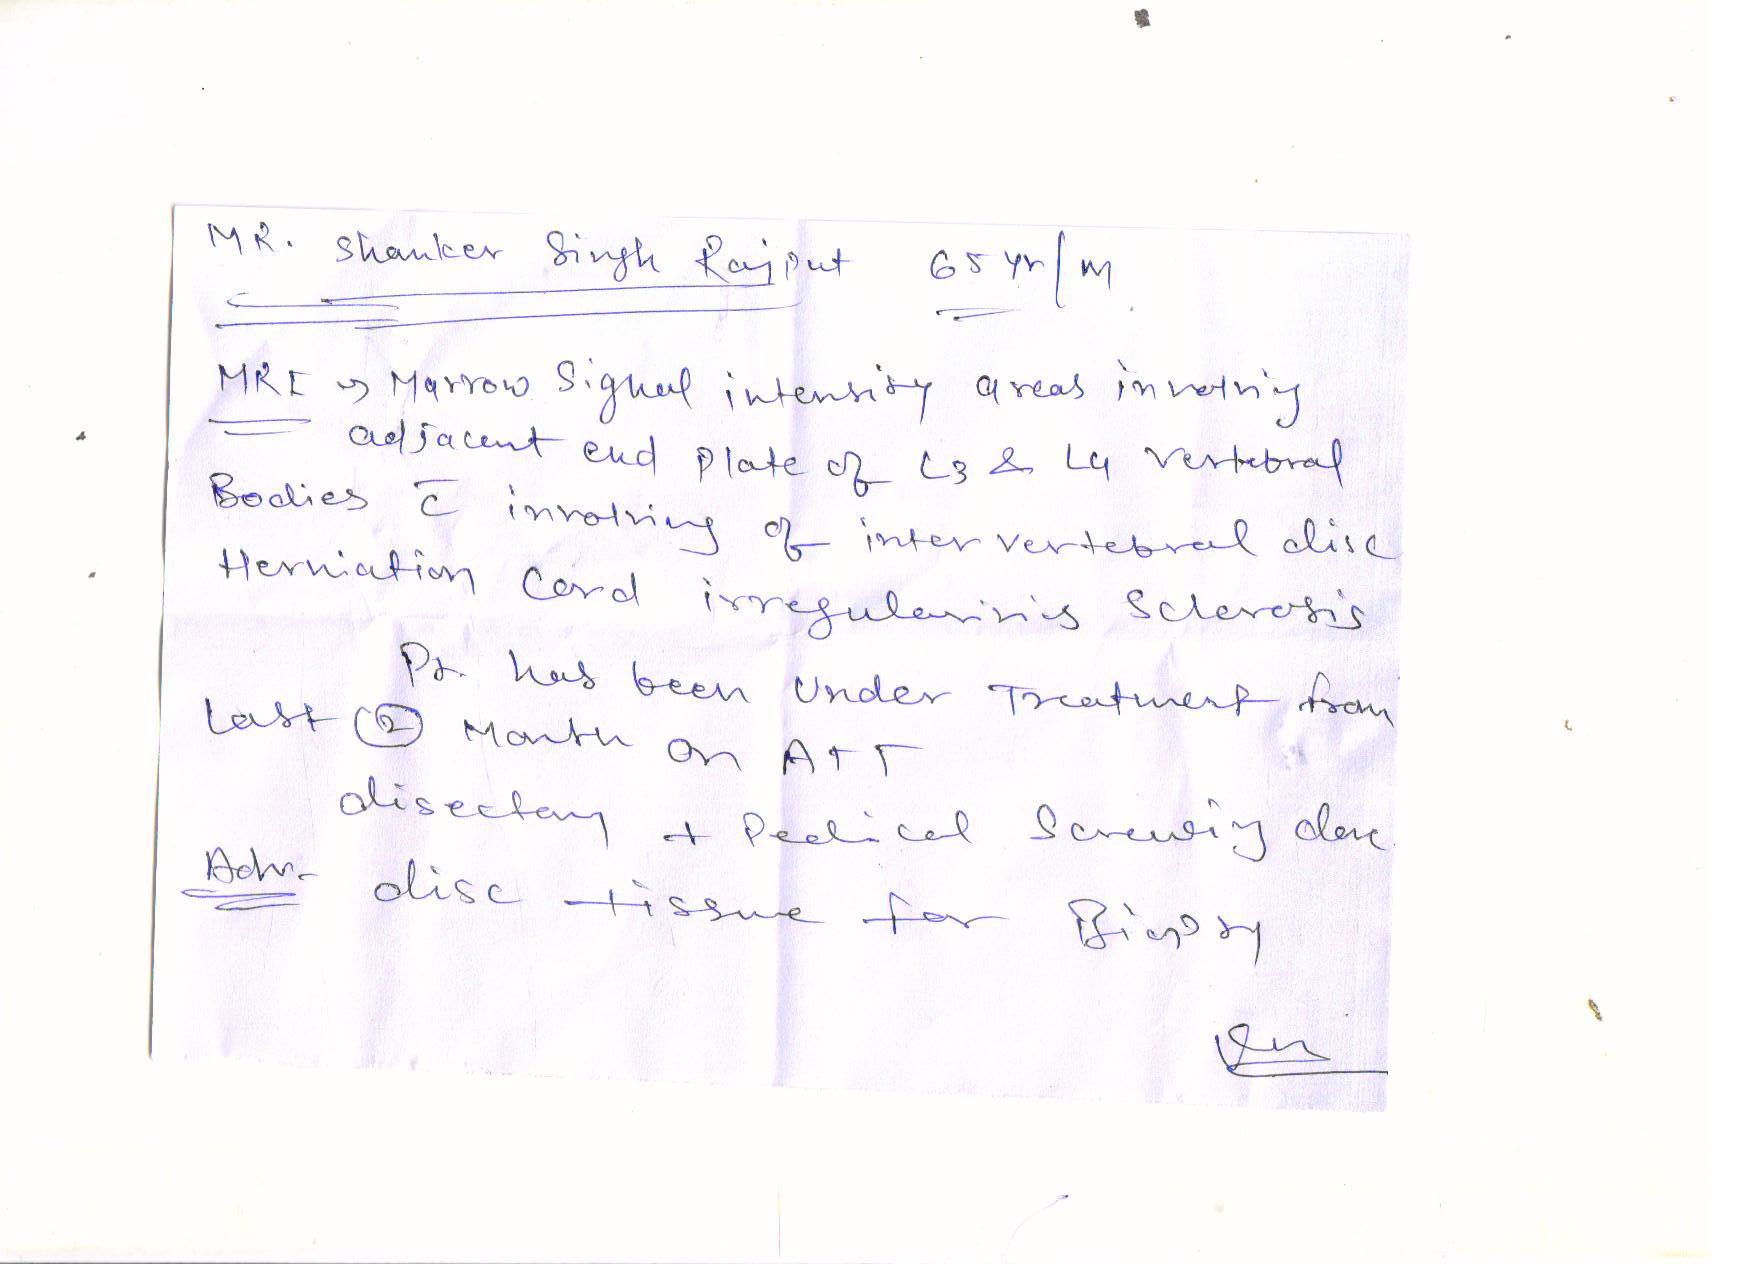 MR. Shanker Singh Rajput 65 yr/M
MRI → Marrow Signal intensity areas involving
adjacent end plate of L3 & L4 vertebral
Bodies c̄ involving of intervertebral disc
Herniation Cord irregularities Sclerosis
Pt. has been under Treatment from
last (2) Month on ATT
disectomy + Pedical Screwing done
Adv. disc tissue for Biopsy